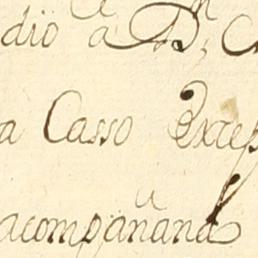 dio a D,
a Casso Excep
acompañana